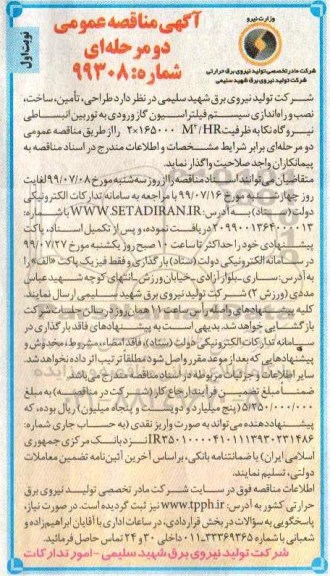 وزارت نیرو
شرکت مادر تخصصی تولید نیروی برق حرارتی
شرکت تولید نیروی برق شهید سلیمی
آگهی مناقصه عمومی
دو مرحله‌ای
شماره: ۹۹۳۰۸
نوبت اول
شرکت تولید نیروی برق شهید سلیمی در نظر دارد طراحی، تأمین، ساخت،
نصب و راه‌اندازی سیستم فیلتراسیون گاز ورودی به توربین انبساطی
نیروگاه نکا به ظرفیت M³/HR ۲×۱۶۵۰۰۰ را از طریق مناقصه عمومی
دو مرحله‌ای برابر شرایط مشخصات و اطلاعات مندرج در اسناد مناقصه به
پیمانکاران واجد صلاحیت واگذار نماید.
متقاضیان می‌توانند اسناد مناقصه را از روز سه‌شنبه مورخ ۹۹/۰۷/۰۸ لغایت
روز چهارشنبه مورخ ۹۹/۰۷/۱۶ با مراجعه به سامانه تدارکات الکترونیکی
دولت (ستاد) به آدرس: WWW.SETADIRAN.IR با شماره:
۲۰۹۹۰۰۱۳۶۴۰۰۰۰۱۳ دریافت نموده، و پس از تکمیل اسناد، پاکت
پیشنهادی خود را حداکثر تا ساعت ۱۰ صبح روز یکشنبه مورخ ۹۹/۰۷/۲۷
در سامانه الکترونیکی دولت (ستاد) بارگذاری و فقط فیزیک پاکت «الف» را
به آدرس: ساری-بلوار آزادی-خیابان ورزش-انتهای کوچه شهید عباس
مددی (ورزش ۲) شرکت تولید نیروی برق شهید سلیمی ارسال نمایند.
پیشنهادهای واصله رأس ساعت ۱۱ همان روز در سالن جلسات شرکت
بازگشایی خواهد شد. بدیهی است به پیشنهادهای فاقد بارگذاری در
سامانه تدارکات الکترونیکی دولت (ستاد)، فاقد امضاء، مشروط، مخدوش و
پیشنهادهایی که بعد از موعد مقرر واصل شود مطلقاً ترتیب اثر داده نخواهد شد.
سایر اطلاعات و جزئیات مربوطه در اسناد مناقصه مندرج می‌باشد.
ضمناً مبلغ تضمین فرآیند ارجاع کار (شرکت در مناقصه) به مبلغ
۵/۲۵۰/۰۰۰/۰۰۰ (پنج میلیارد و دویست و پنجاه میلیون) ریال بوده، که
واریز دهنده می‌تواند به صورت واریز نقدی (به حساب جاری شماره:
IR۳۵۰۱۰۰۰۰۴۱۰۱۱۱۳۹۳۰۲۳۱۴۸۶ نزد بانک مرکزی جمهوری
اسلامی ایران) یا ضمانتنامه بانکی، براساس آخرین آئین‌نامه تضمین معاملات
دولتی، تسلیم نمایند.
اطلاعات مناقصه فوق در سایت شرکت مادر تخصصی تولید نیروی برق
حرارتی کشور به آدرس: www.tpph.ir نیز ثبت گردیده است. در صورت نیاز،
پاسخگویی به سؤالات در بخش قراردادی، در ساعات اداری با آقایان ابراهیم‌زاده و
شعبانی با شماره ۳۳۳۶۹۳۶۵-۰۱۱ داخلی ۳۰ و ۲۴ تماس حاصل فرمائید.
شرکت تولید نیروی برق شهید سلیمی - امور تدارکات